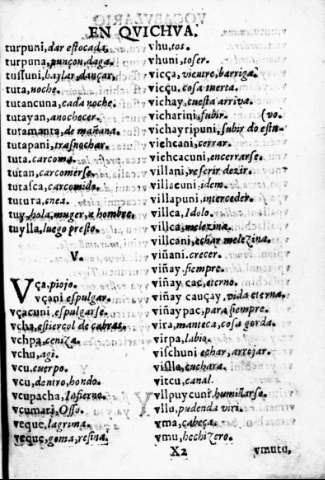 EN QVICHVA.
turpuni, dar estocada.
turpuna, punçon, daga.
tussuni, baylar, dançar.
tuta, noche.
tutancuna, cada noche.
tutayan, anochecer.
tutamanta, de mañana.
tutapani, trasnochar.
tuta, carcoma.
tutan, carcomerse.
tutasca, carcomido.
tutura, enea.
tuy, hola, muger, a hombre.
tuylla, luego presto.
V.
Vça, piojo.
vçani espulgar.
vçacuni, espulgarse.
vcha, estiercol de cabras.
vchpa, ceniza.
vchu, agi.
vcu, cuerpo.
vcu, dentro, hondo.
vcupacha, Infierno.
vcumari, Osso.
veque, lagrima.
veque, goma, resina.
vhu, tos.
vhuni, toser.
vicça, vientre, barriga.
vicçu, cosa tuerta.
vichay, cuesta arriva.
vicharini, subir. (vo.
vichayripuni, subir do estu-
viehcani, cerrar.
viehcacuni, encerrarse.
villani, referir dezir.
villacuni, idem.
villapuni, interceder.
villca, Idolo.
villca, melezina.
villcani, echar melezina.
viñani, crecer.
viñay, siempre.
viñay cac, eterno.
viñay cauçay, vida eterna.
viñay pac, para siempre.
vira, manteca, cosa gorda.
virpa, labio.
vischuni echar, arrojar.
vislla, cuchara.
vitcu, canal.
vllpuycuni, humillarse.
vllu, pudenda viri.
vma, cabeça.
vmu, hechizero.
X2
vmutu,